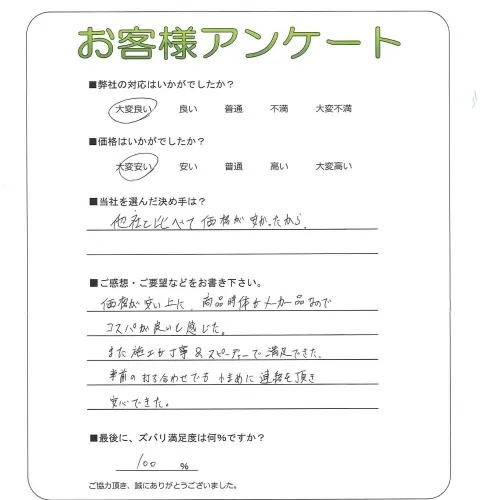 お客様アンケート
■弊社の対応はいかがでしたか？
大変良い 良い 普通 不満 大変不満
■価格はいかがでしたか？
大変安い 安い 普通 高い 大変高い
■当社を選んだ決め手は？
他社と比べて価格が安かったから。
■ご感想・ご要望などをお書き下さい。
価格が安い上に、商品自体がメーカー品なので
コスパが良いと感じた。
また施工が丁寧＆スピーディーで満足できた。
事前の打ち合わせでも小まめに連絡を頂き
安心できた。
■最後に、ズバリ満足度は何％ですか？
100 ％
ご協力頂き、誠にありがとうございました。